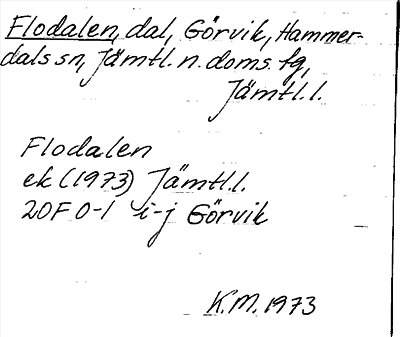 Flodalen, dal, Görvik, Hammer-
dals sn, Jämtl. n. doms. tg,
Jämtl. l.
Flodalen
ek (1973) Jämtl. l.
20F 0-1 i-j Görvik
K.M. 1973